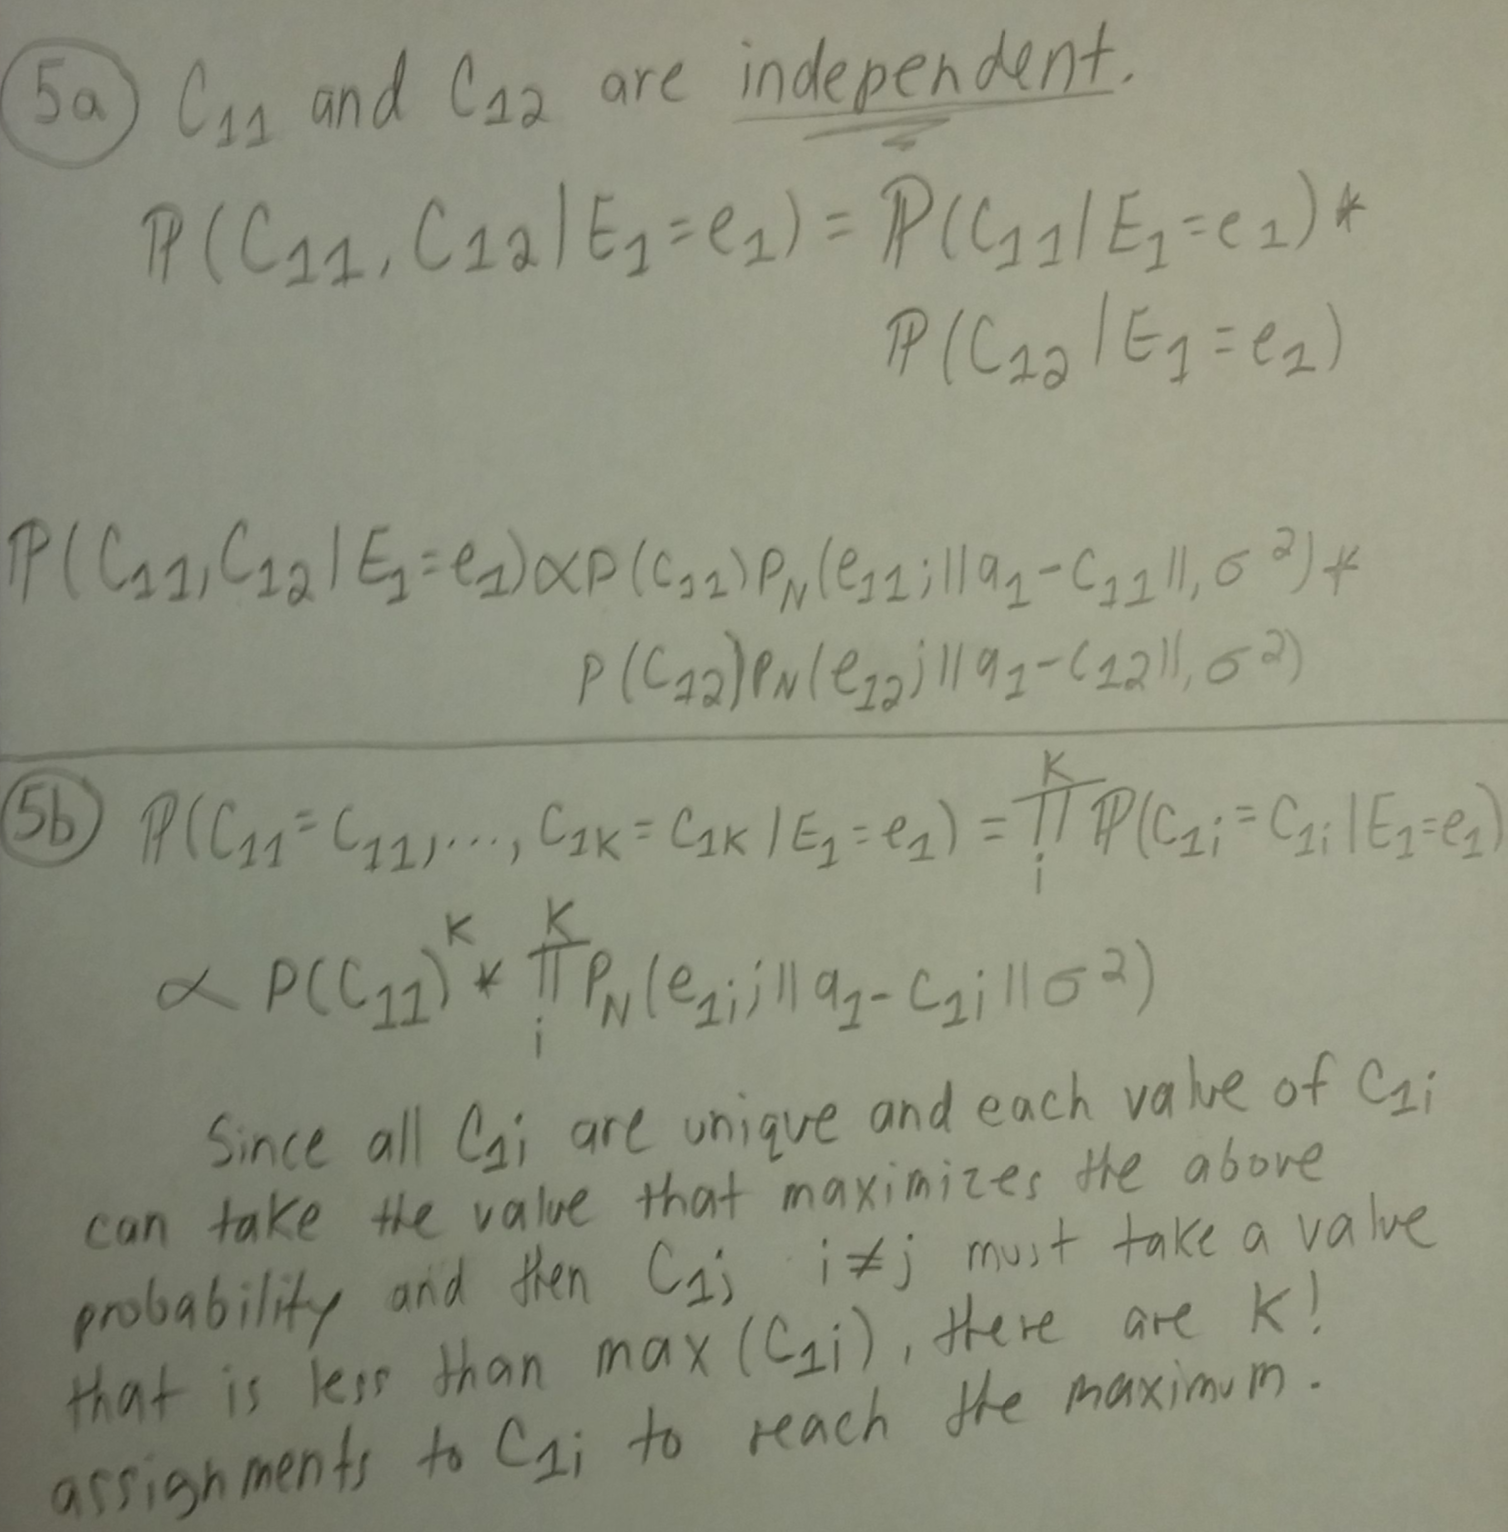 5a C₁₁ and C₁₂ are independent.
ℙ(C₁₁, C₁₂ | E₁ = e₁) = ℙ(C₁₁ | E₁ = e₁) *
ℙ(C₁₂ | E₁ = e₁)
ℙ(C₁₁, C₁₂ | E₁ = e₁) ∝ p(c₁₁) p_N(e₁₁; ||a₁ - c₁₁||, σ²) *
p(c₁₂) p_N(e₁₂; ||a₁ - c₁₂||, σ²)
5b ℙ(C₁₁ = c₁₁, ..., C₁K = c₁K | E₁ = e₁) = ∏ᵢᴷ ℙ(C₁ᵢ = c₁ᵢ | E₁ = e₁)
∝ p(c₁₁)ᴷ * ∏ᵢᴷ p_N(e₁ᵢ; ||a₁ - c₁ᵢ|| σ²)
Since all C₁ᵢ are unique and each value of C₁ᵢ
can take the value that maximizes the above
probability and then C₁ⱼ i ≠ j must take a value
that is less than max (C₁i), there are K!
assignments to C₁ᵢ to reach the maximum.